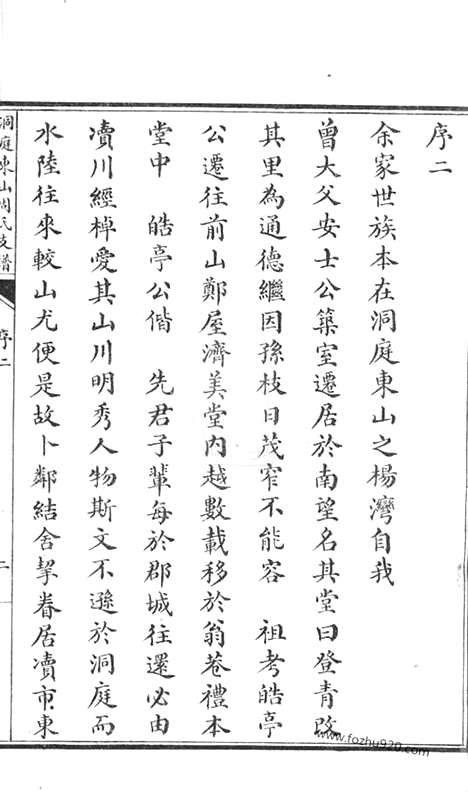 序二
余家世族本在洞庭東山之楊灣自我
曾大父安士公築室遷居於南望名其堂曰登青改
其里為通德繼因孫枝日茂窄不能容　祖考皓亭
公遷往前山鄭屋濟美堂內越數載移於翁巷禮本
堂中　皓亭公偕　先君子輩每於郡城往還必由
瀆川經棹愛其山川明秀人物斯文不遜於洞庭而
水陸往來較山尤便是故卜鄰結舍挈眷居瀆市東
洞庭東山周氏支譜
序二
www.fozhu920.com